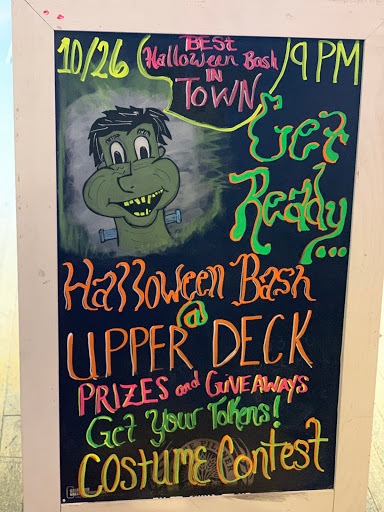 10/26
BEST
Halloween Bash
IN
TOWN
9 PM
Get
Ready...
Halloween Bash
@
UPPER DECK
PRIZES and GIVEAWAYS
Get Your Tokens!
COSTUME Contest